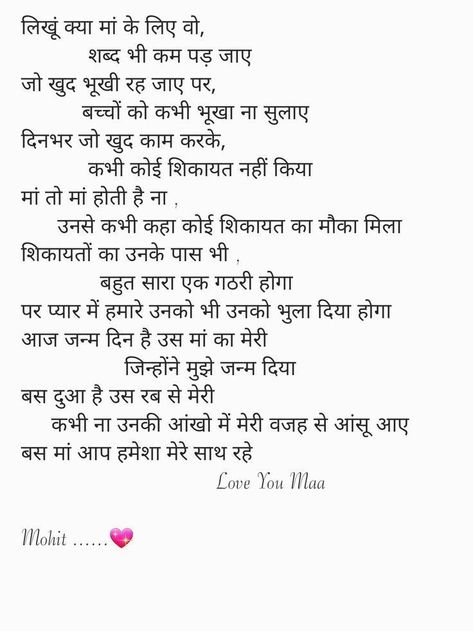 लिखूं क्या मां के लिए वो,
शब्द भी कम पड़ जाए
जो खुद भूखी रह जाए पर,
बच्चों को कभी भूखा ना सुलाए
दिनभर जो खुद काम करके,
कभी कोई शिकायत नहीं किया
मां तो मां होती है ना ,
उनसे कभी कहा कोई शिकायत का मौका मिला
शिकायतों का उनके पास भी ,
बहुत सारा एक गठरी होगा
पर प्यार में हमारे उनको भी उनको भुला दिया होगा
आज जन्म दिन है उस मां का मेरी
जिन्होंने मुझे जन्म दिया
बस दुआ है उस रब से मेरी
कभी ना उनकी आंखो में मेरी वजह से आंसू आए
बस मां आप हमेशा मेरे साथ रहे
Love You Maa
Mohit ......💖